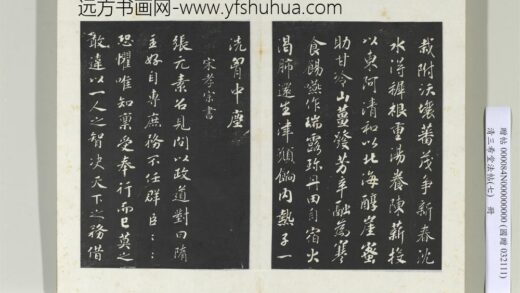 远方书画网-www.yfshuhua.com
栽附沃壤蕃茂争新春沈
水浔稚根重湯養陳薪投
以東阿清和以北海醇崖蜜
助甘冷山薑發芳辛融為寒
食餳嚥作瑞露珍丹田自宿火
渴肺還生津願餉内熱子一
洗胷中塵
宋孝宗書
張元素名見問以政道對曰隋
主好自專庶務不任群臣〻〻
恐懼唯知稟受奉行而已莫之
敢違以一人之智决天下之務借
贈帖 000084N000000000 (國贈 032111)
清三希堂法帖(七) 冊